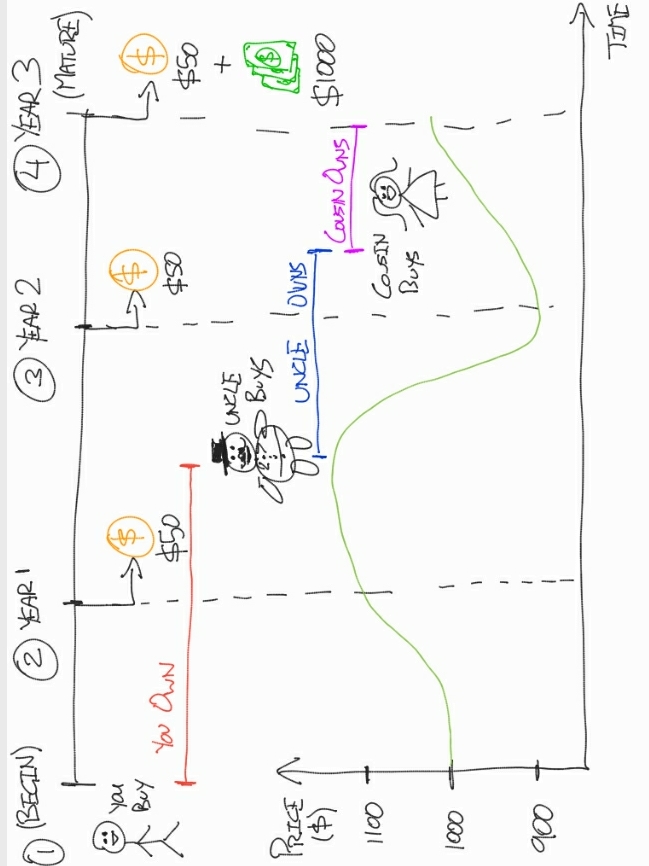 1 (BEGIN)
2 YEAR 1
3 YEAR 2
4 YEAR 3
(MATURE)
YOU
BUY
$
$50
$
$50
$
$50
+
$
$1000
YOU OWN
UNCLE
BUYS
UNCLE OWNS
COUSIN OWNS
COUSIN
BUYS
PRICE
($)
1100
1000
900
TIME